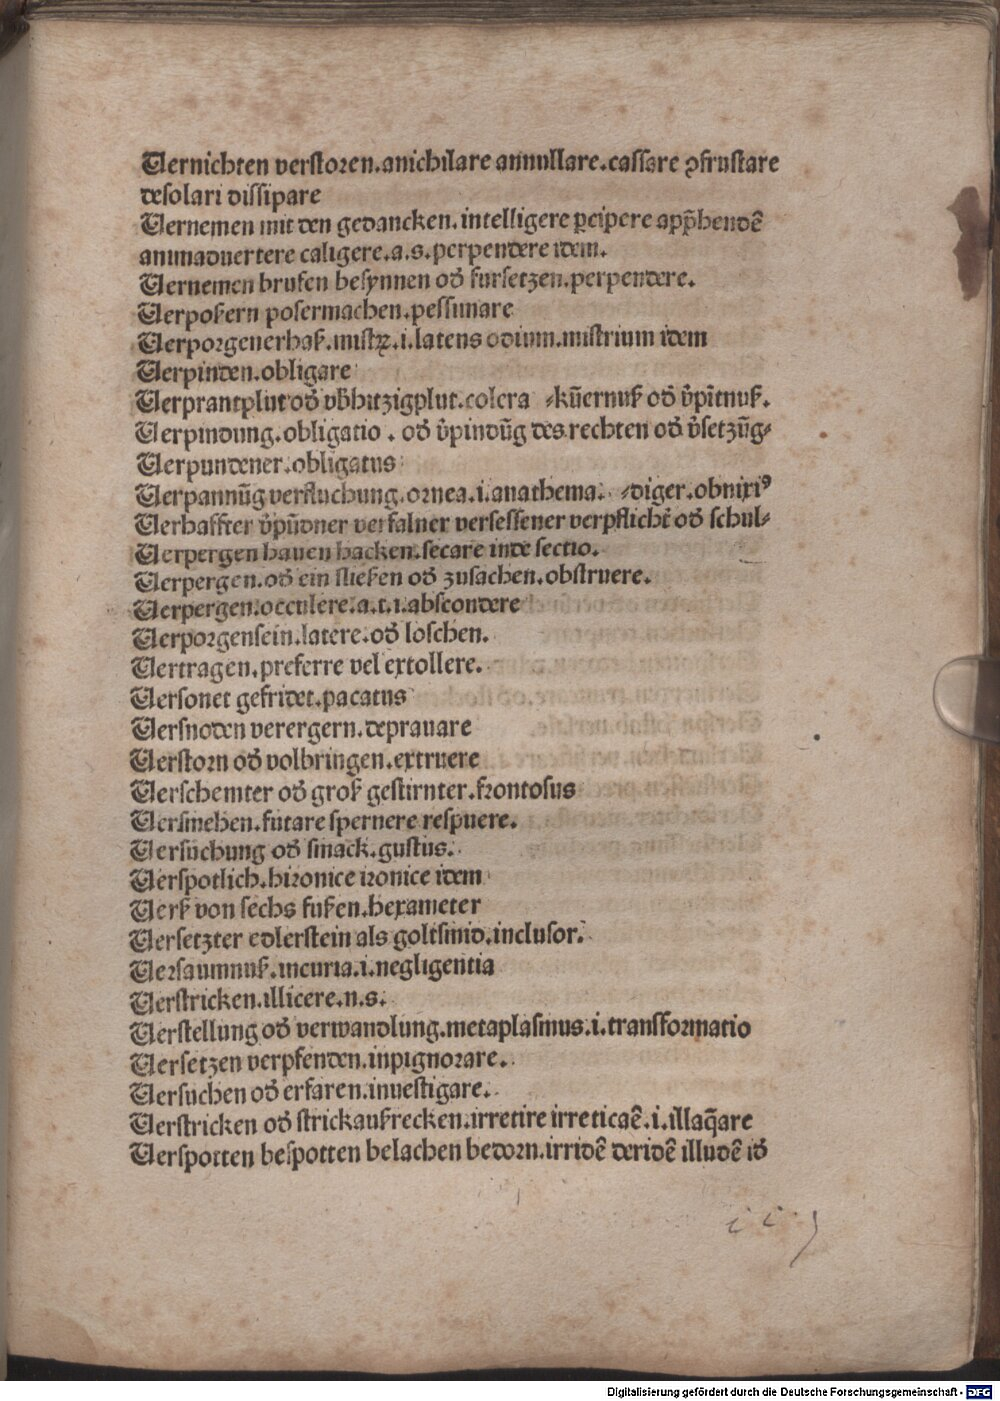 Vernichten verstoren.anichilare annullare.cassare ꝓfrustare
desolari dissipare
Vernemen mit den gedancken.intelligere ꝑcipere app̄hendẽ
animaduertere caligere.a.s.perpendere idem.
Vernemen brufen besynnen od̕ fursetzen.perpendere.
Verpoſern poſermachen.pessunare
Verporgenerhaſ.mistꝝ.i.latens odium.mistrium idem
Verpinden.obligare
Verprantplut od̕ vb̕hitzigplut.colera ⸗kũernuſ od̕ v̕pĩtnuſ.
Verpindung.obligatio . od̕ v̕pindũg des rechten od̕ v̕setzũg⸗
Verpundener.obligatus
Verpannũg verfluchung.ornea.i.anathema. ⸗diger.obnixiꝰ
Verhaffter v̕pũdner verfalner versessener verpflicht̕ od̕ schul⸗
Verpergen hauen hacken.secare inde sectio.
Verpergen.od̕ ein slieſen od̕ zusachen.obstruere.
Verpergen.occulere.a.t.i.abscondere
Verporgensein.latere.od̕ loschen.
Vertragen.preferre vel extollere.
Versonet gefridet.pacatus
Versnoden verergern.deprauare
Verstorn od̕ volbringen.extruere
Verschemter od̕ groſ gestirnter.frontosus
Versmehen.futare spernere respuere.
Versuchung od̕ smack.gustus.
Verspotlich.hironice ironice idem
Verſ von sechs fuſen.hexameter
Versetzter edlerstein als goltsmid.inclusor.
Versaumnuſ.incuria.i.negligentia
Verstricken.illicere.n.s.
Verstellung od̕ verwandlung.metaplasmus.i.transformatio
Versetzen verpfenden.inpignorare.
Versuchen od̕ erfaren.inuestigare.
Verstricken od̕ strickaufrecken.irretire irreticaẽ.i.illaq̄are
Verspotten bespotten belachen bedorn.irridẽ deridẽ illudẽ id̕
Digitalisierung gefördert durch die Deutsche Forschungsgemeinschaft - DFG